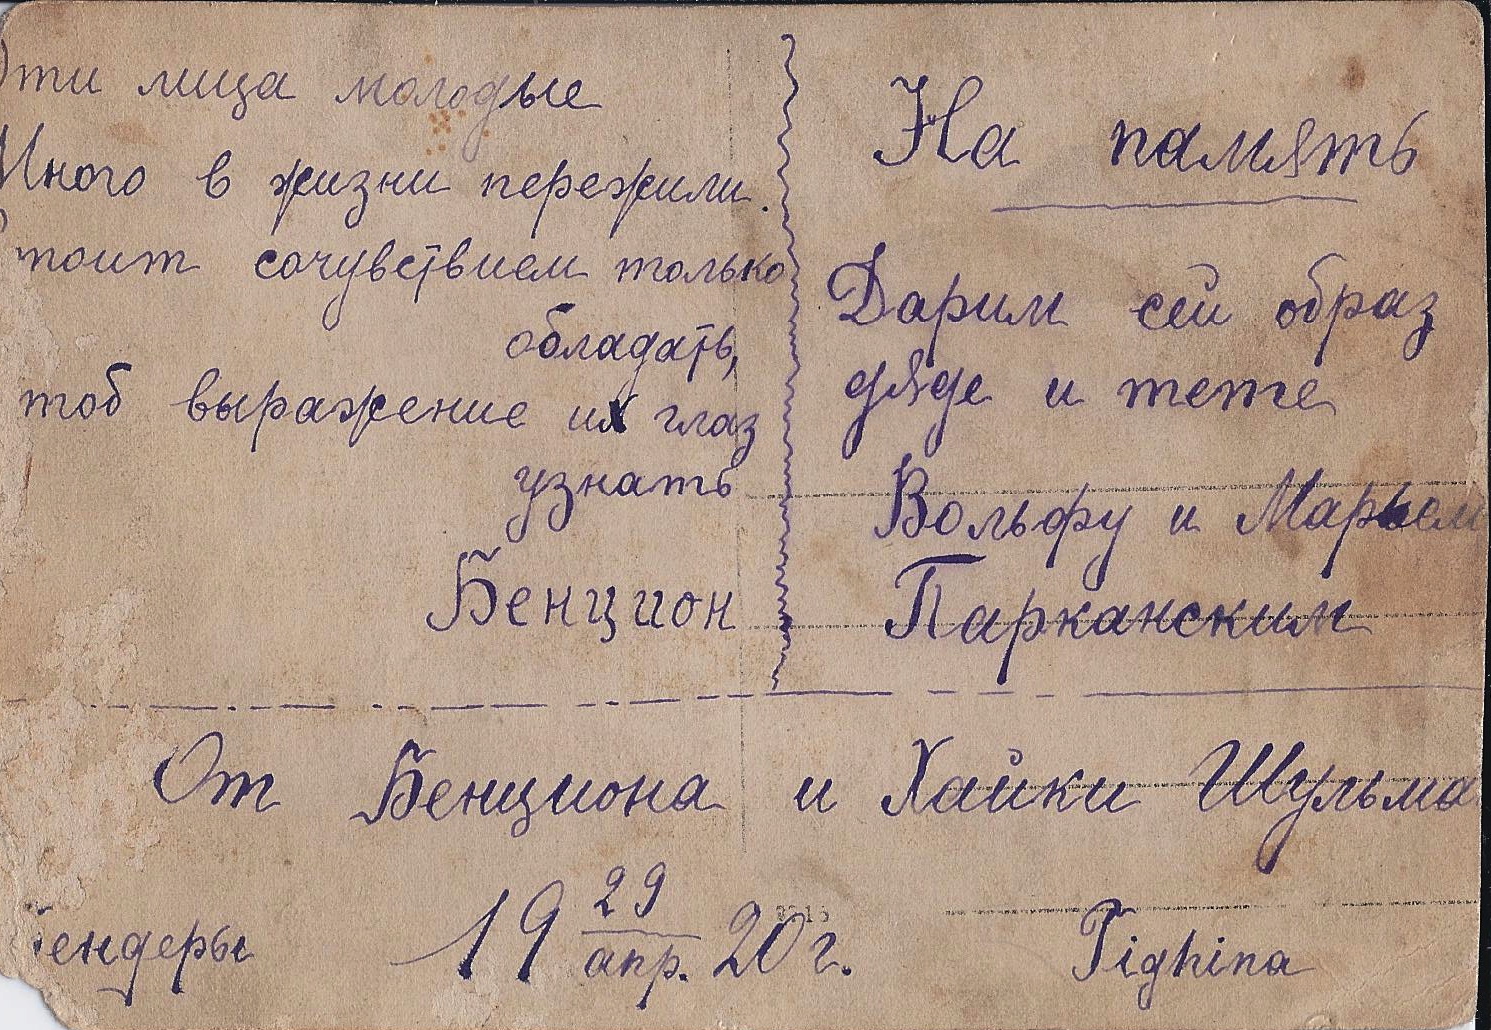 Эти лица молодые
Много в жизни пережили.
Стоит сочувствием только
обладать,
тоб выражение их глаз
узнать
Бенцион
На память
Дарим сей образ
дяде и тете
Вольфу и Марьем
Парканским
От Бенциона и Хайки Шульма
ендеры 19 29/апр. 20 г. Tighina